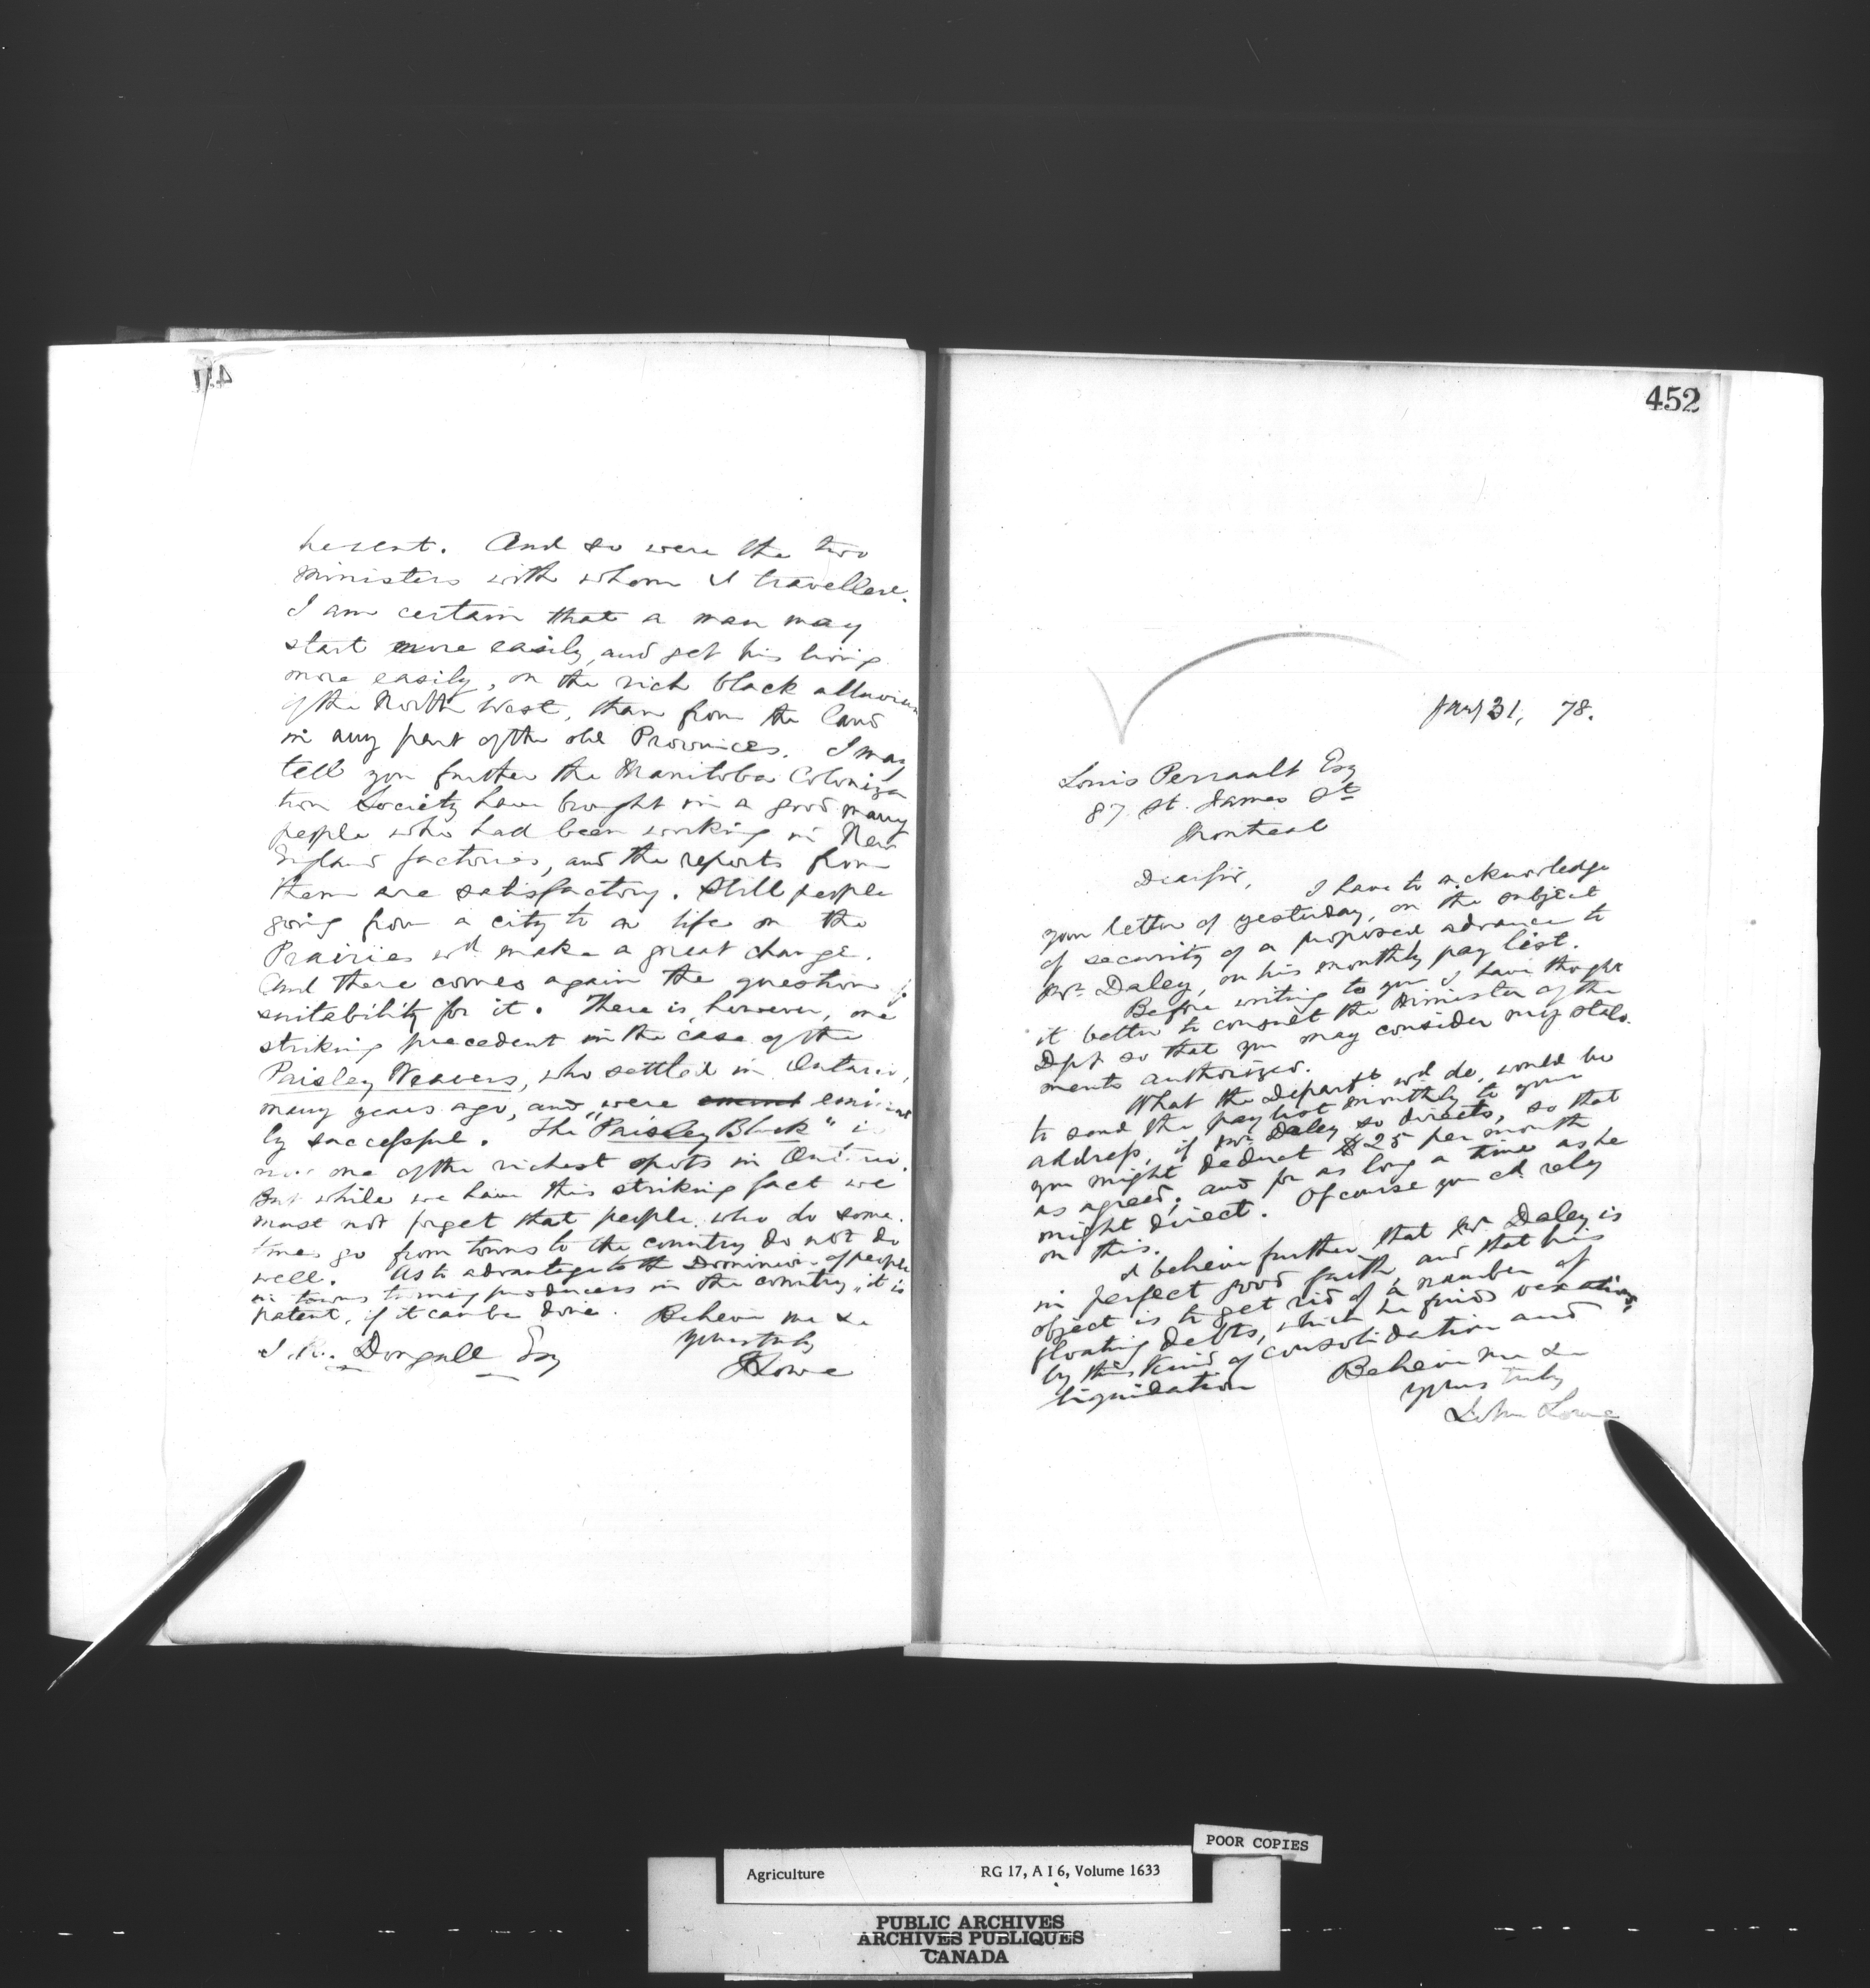 And so were the two
ministers with whom I travelled.
I am certain that a man may
start more easily, and get his living
more easily, on the rich black alluvium
of the North West, than from the land
in any part of the old Provinces. I may
tell you further the Manitoba Coloniza
tion Society have brought in a good many
people who had been working in New
England factories, and the reports from
them are satisfactory. Still people
going from a city to a life on the
Prairies wd make a great change.
And there comes again the question of
suitability for it. There is, however, one
striking precedent in the case of the
Paisley Weavers, who settled in Ontario,
many years ago, and were eminent
ly successful. The "Paisley Block" is
now one of the richest spots in Ontario.
But while we have this striking fact we
must not forget that people who do some
times go from towns to the country do not do
well. As to advantage to the Dominion of people
in towns turning producers in the country, it is
patent, if it can be done. Believe me &c
Yours truly
J. R. Dougall Esq
JLowe
452
Jany 31, 78.
Louis Perrault Esq
87 St. James St
Montreal
Dear Sir, I have to acknowledge
your letter of yesterday, on the subject
of security of a proposed advance to
Mr. Daley, on his monthly pay list.
Before writing to you I have thought
it better to consult the Minister of the
Dept so that you may consider my state
ments authorized.
What the Departt wd do, would be
to send the pay list monthly to your
address, if Mr Daley so directs, so that
you might deduct $25 per month
as agreed; and for as long a time as he
might direct. Of course you cd rely
on this.
I believe further that Mr. Daley is
in perfect good faith, and that his
object is to get rid of a number of
floating debts, which he finds vexatious,
by this kind of consolidation and
liquidation Believe me &c
Yours truly
John Lowe
POOR COPIES
Agriculture RG 17, A I 6, Volume 1633
PUBLIC ARCHIVES
ARCHIVES PUBLIQUES
CANADA